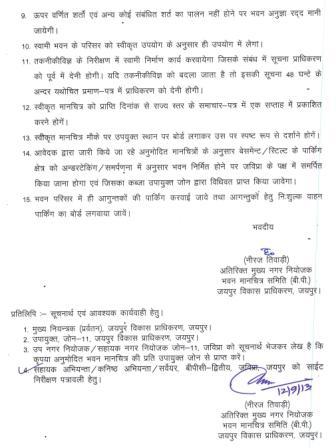 9. ऊपर वर्णित शर्तों एवं अन्य कोई संबंधित शर्त का पालन नहीं होने पर भवन अनुज्ञा रद्द मानी
जायेगी।
10. स्वामी भवन के परिसर को स्वीकृत उपयोग के अनुसार ही उपयोग में लेगा।
11. तकनीकीविज्ञ के निरीक्षण में स्वामी निर्माण कार्य करवायेगा जिसके संबंध में सूचना प्राधिकरण
को पूर्व में देनी होगी। यदि तकनीकीविज्ञ को बदला जाता है तो इसकी सूचना 48 घन्टे के
अन्दर यथोचित प्रमाण-पत्र में प्राधिकरण को देनी होगी।
12. स्वीकृत मानचित्र को प्राप्ति दिनांक से राज्य स्तर के समाचार-पत्र में एक सप्ताह में प्रकाशित
करने होगें।
13. स्वीकृत मानचित्र मौके पर उपयुक्त स्थान पर बोर्ड लगाकर उस पर स्पष्ट रूप से दर्शाने होगें।
14. आवेदक द्वारा जारी किये जा रहे अनुमोदित मानचित्रों के अनुसार बेसमेन्ट/स्टिल्ट के पार्किंग
क्षेत्र को अन्डरटेकिंग/समर्पणनामा में अनुसार भवन निर्मित होने पर जविप्रा के पक्ष में समर्पित
किया जाना होगा एवं जिसका कब्जा उपायुक्त जोन द्वारा विधिवत प्राप्त किया जावेगा।
15. भवन परिसर में ही आगुन्तकों की पार्किंग करवाई जावे तथा आगन्तुकों हेतु नि:शुल्क वाहन
पार्किंग का बोर्ड लगवाया जावें।
भवदीय
(नीरज तिवाड़ी)
अतिरिक्त मुख्य नगर नियोजक
भवन मानचित्र समिति (बी.पी.)
जयपुर विकास प्राधिकरण, जयपुर।
प्रतिलिपि :- सूचनार्थ एवं आवश्यक कार्यवाही हेतु।
1. मुख्य नियन्त्रक (प्रर्वतन), जयपुर विकास प्राधिकरण, जयपुर।
2. उपायुक्त, जोन-11, जयपुर विकास प्राधिकरण, जयपुर।
3. उप नगर नियोजक/सहायक नगर नियोजक जोन-11, जविप्रा को सूचनार्थ भेजकर लेख है कि
कृपया अनुमोदित भवन मानचित्र की प्रति उपायुक्त जोन से प्राप्त करें।
4. सहायक अभियन्ता/कनिष्ठ अभियन्ता/सर्वेयर, बीपीसी-द्वितीय, जविप्रा, जयपुर को साईट
निरीक्षण पत्रावली हेतु।
12/9/13
(नीरज तिवाड़ी)
अतिरिक्त मुख्य नगर नियोजक
भवन मानचित्र समिति (बी.पी.)
जयपुर विकास प्राधिकरण, जयपुर।